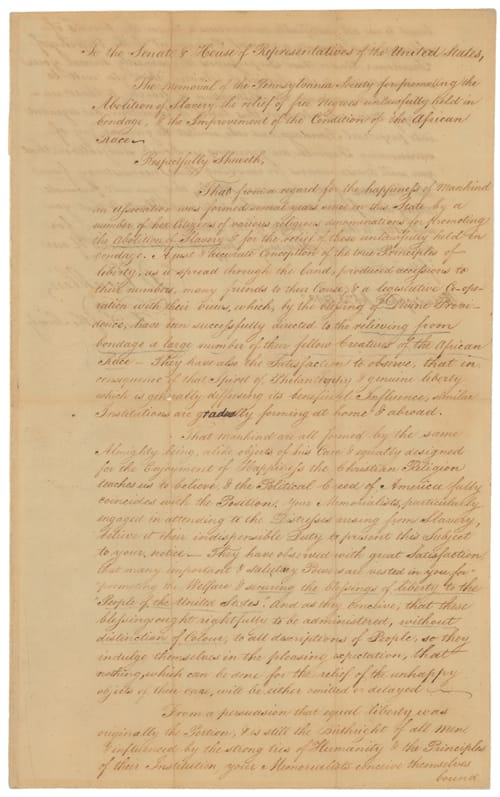 To the Senate & House of Representatives of the United States,
The Memorial of the Pennsylvania Society for promoting the
Abolition of Slavery, the relief of free Negroes unlawfully held in
bondage, & the Improvement of the Condition of the African
Race—
Respectfully Sheweth,
That from a regard for the happiness of Mankind
an Association was formed several years since in this State by a
number of her Citizens of various religious denominations for promoting
the Abolition of Slavery & for the relief of those unlawfully held in
bondage. A just & accurate Conception of the true Principles of
liberty, as it spread through the land, produced accessions to
their numbers, many friends to their Cause, & a legislative Co-ope-
ration with their views, which, by the blessing of Divine Provi-
dence, have been successfully directed to the relieving from
bondage a large number of their fellow Creatures of the African
Race— They have also the Satisfaction to observe, that in
consequence of that Spirit of Philanthropy & genuine liberty
which is generally diffusing its beneficial Influence, similar
Institutions are gradually forming at home & abroad.
That mankind are all formed by the same
Almighty being, alike objects of his Care & equally designed
for the Enjoyment of Happiness the Christian Religion
teaches us to believe, & the Political Creed of America fully
coincides with the Position. Your Memorialists, particularly
engaged in attending to the Distresses arising from Slavery,
believe it their indispensible Duty to present this Subject
to your notice— They have observed with great Satisfaction
that many important & salutary Powers are vested in you for
"promoting the Welfare & securing the blessings of liberty to the
"People of the United States." And as they conceive, that these
blessings ought rightfully to be administered, without
distinction of Colour, to all descriptions of People, so they
indulge themselves in the pleasing expectation, that
nothing, which can be done for the relief of the unhappy
objects of their care, will be either omitted or delayed—
From a persuasion that equal liberty was
originally the Portion, & is still the birthright of all Men
& influenced by the strong ties of Humanity & the Principles
of their Institution, your Memorialists conceive themselves
bound